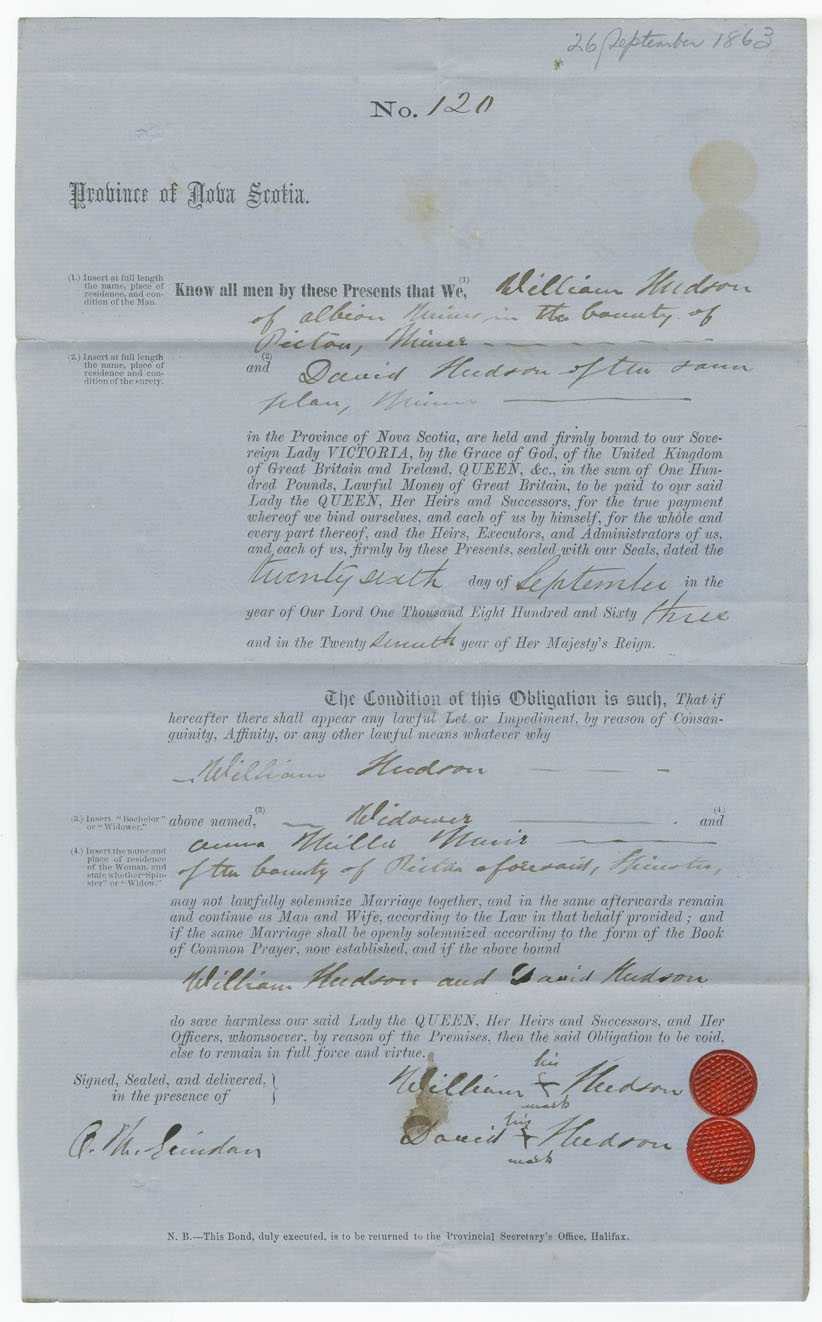 26 September 1863
No. 120
Province of Nova Scotia.
(1.) Insert at full length
the name, place of
residence, and con-
dition of the Man.
Know all men by these Presents that We, (1) William Hudson
of albion Mines, in the County of
Pictou, Miner
(2.) Insert at full length
the name, place of
residence and con-
dition of the surety.
and (2) David Hudson of the same
place, Miner
in the Province of Nova Scotia, are held and firmly bound to our Sove-
reign Lady VICTORIA, by the Grace of God, of the United Kingdom
of Great Britain and Ireland, QUEEN, &c., in the sum of One Hun-
dred Pounds, Lawful Money of Great Britain, to be paid to our said
Lady the QUEEN, Her Heirs and Successors, for the true payment
whereof we bind ourselves, and each of us by himself, for the whole and
every part thereof, and the Heirs, Executors, and Administrators of us,
and each of us, firmly by these Presents, sealed with our Seals, dated the
twenty sixth day of September in the
year of Our Lord One Thousand Eight Hundred and Sixty three
and in the Twenty seventh year of Her Majesty's Reign.
The Condition of this Obligation is such, That if
hereafter there shall appear any lawful Let or Impediment, by reason of Consan-
guinity, Affinity, or any other lawful means whatever why
William Hudson
(3.) Insert "Bachelor"
or "Widower."
above named, (3) Widower (4) and
(4.) Insert the name and
place of residence
of the Woman, and
state whether "Spin-
ster" or "Widow."
Muir
of the County of Pictou aforesaid, Spinster,
may not lawfully solemnize Marriage together, and in the same afterwards remain
and continue as Man and Wife, according to the Law in that behalf provided ; and
if the same Marriage shall be openly solemnized according to the form of the Book
of Common Prayer, now established, and if the above bound
William Hudson and David Hudson
do save harmless our said Lady the QUEEN, Her Heirs and Successors, and Her
Officers, whomsoever, by reason of the Premises, then the said Obligation to be void,
else to remain in full force and virtue.
Signed, Sealed, and delivered,
in the presence of
his
William X Hudson
mark
his
David X Hudson
mark
N. B.—This Bond, duly executed, is to be returned to the Provincial Secretary's Office, Halifax.